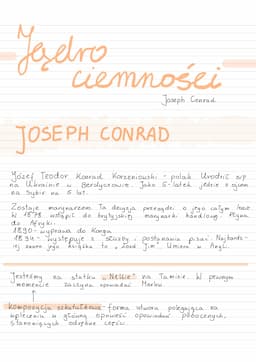 Jądro
ciemności
Joseph Conrad
JOSEPH CONRAD
Józef Teodor Konrad Korzeniowski - polak. Urodził się
na Ukrainie w Berdyczowie. Jako 5-latek jedzie z ojcem
na Sybir na 5 lat.
Zostaje marynarzem. Ta decyzja przerządzi o jego całym życiu
W 1878 wstąpił do brytyjskiej marynarki handlowej. Pływa
do Afryki.
1890 - wyprawa do Konga
1894 - występuje z służby i postanawia pisać. Najbardz-
iej znana jego książka to „Lord Jim". Umiera w Angli.
Jesteśmy na statku „Nellie" na Tamizie. W pewnym
momencie zaczyna opowiadać Marlow.
Kompozycja szkatułkowa - forma utworu polegająca na
wpleceniu w główną opowieść opowiadań pobocznych,
stanowiących odrębne części